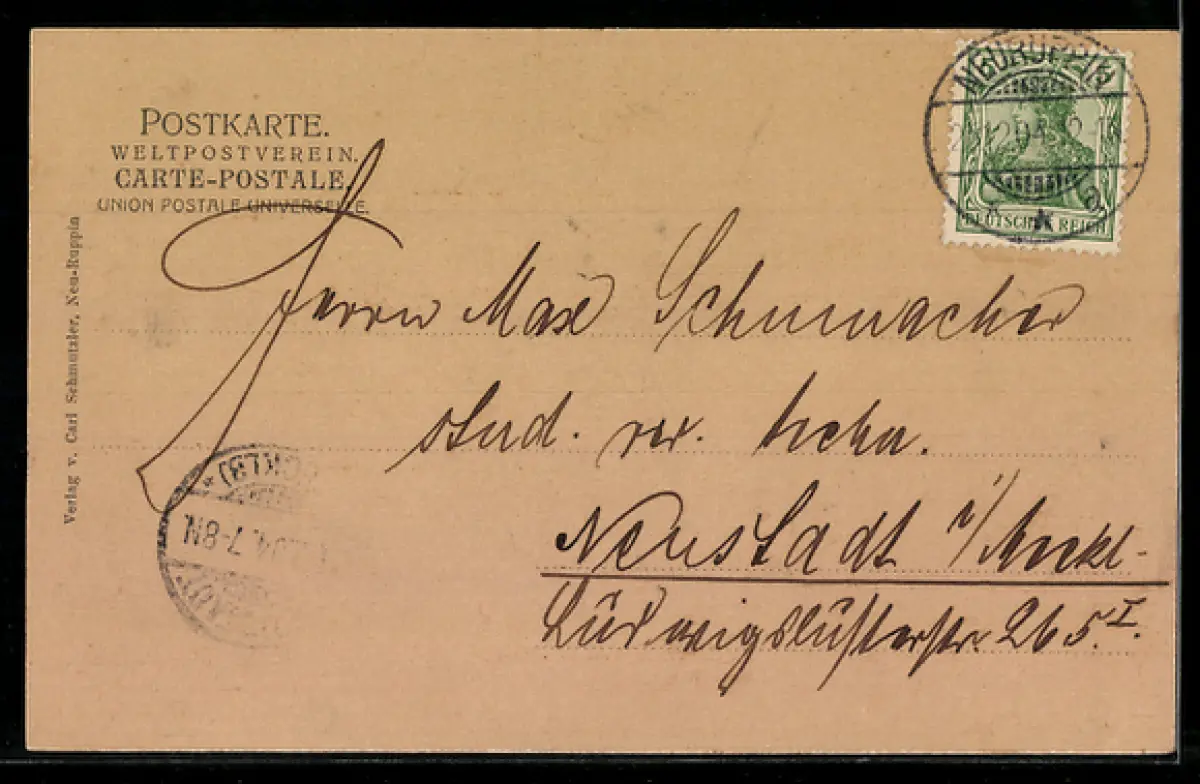 POSTKARTE.
WELTPOSTVEREIN.
CARTE-POSTALE.
UNION POSTALE UNIVERSELLE.
Verlag v. Carl Schmutzler, Neu-Ruppin
NEURUPPIN
DEUTSCHES REICH
a
Herrn Max Schumacher
stud. rer. techn.
Neustadt i/Meckl-
Lüdwigslüsterstr. 26 5 I.
04.7-8N.